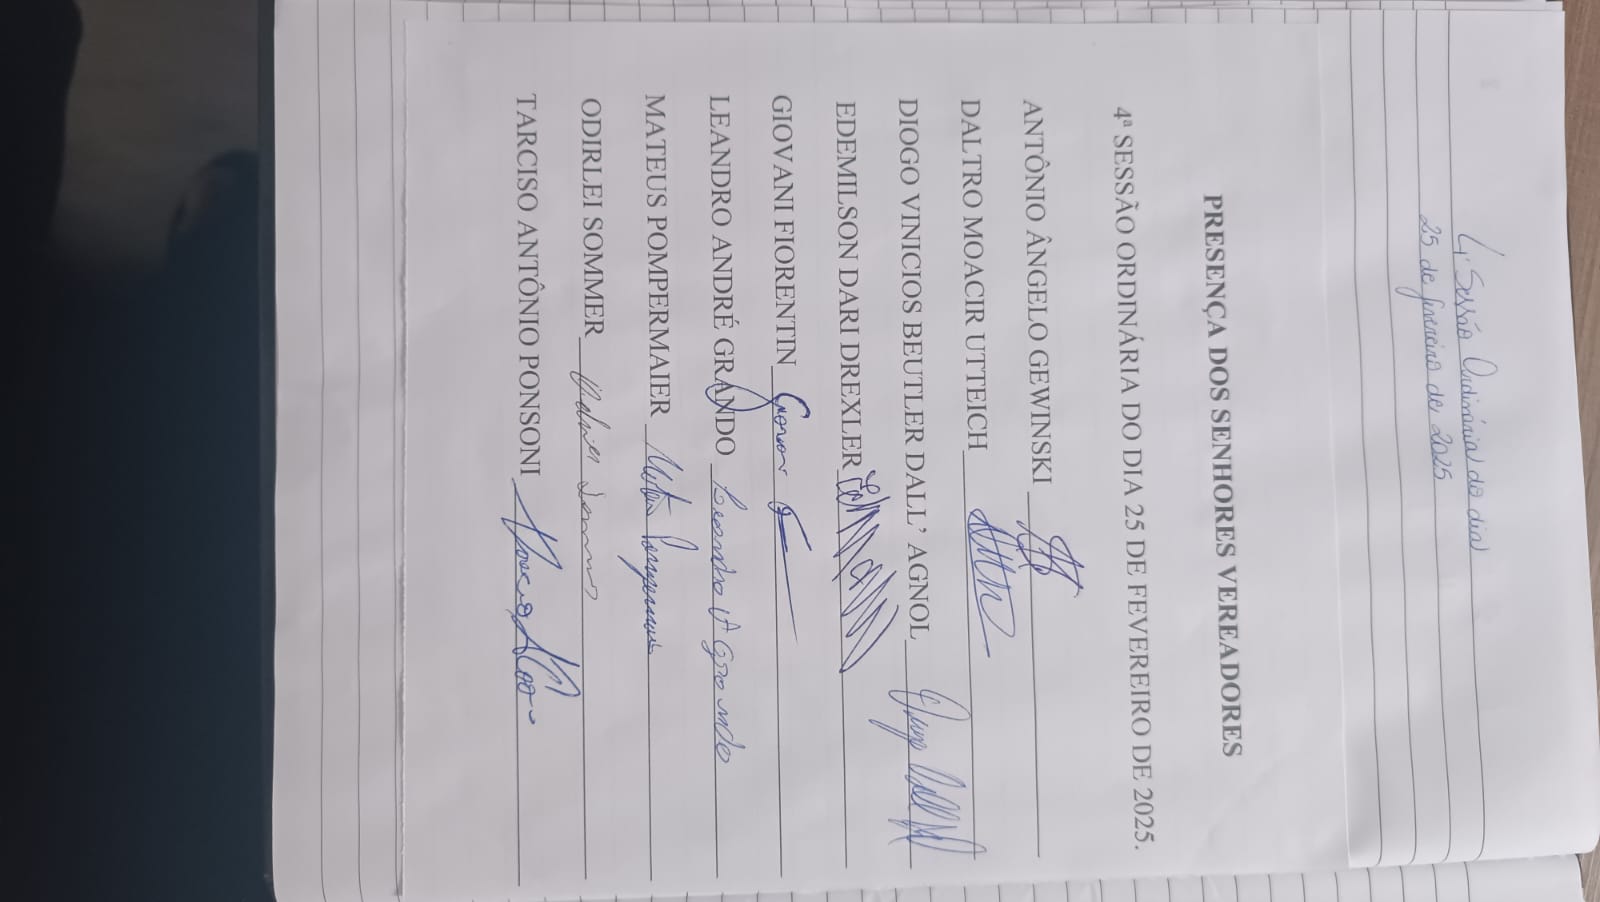 4ª Sessão Ordinária do dia
25 de fevereiro de 2025
PRESENÇA DOS SENHORES VEREADORES
4ª SESSÃO ORDINÁRIA DO DIA 25 DE FEVEREIRO DE 2025.
ANTÔNIO ÂNGELO GEWINSKI
DALTRO MOACIR UTTEICH
DIOGO VINICIOS BEUTLER DALL' AGNOL
EDEMILSON DARI DREXLER
GIOVANI FIORENTIN
LEANDRO ANDRÉ GRANDO Leandro A Grando
MATEUS POMPERMAIER Mateus Pompermaier
ODIRLEI SOMMER Odirlei Sommer
TARCISO ANTÔNIO PONSONI